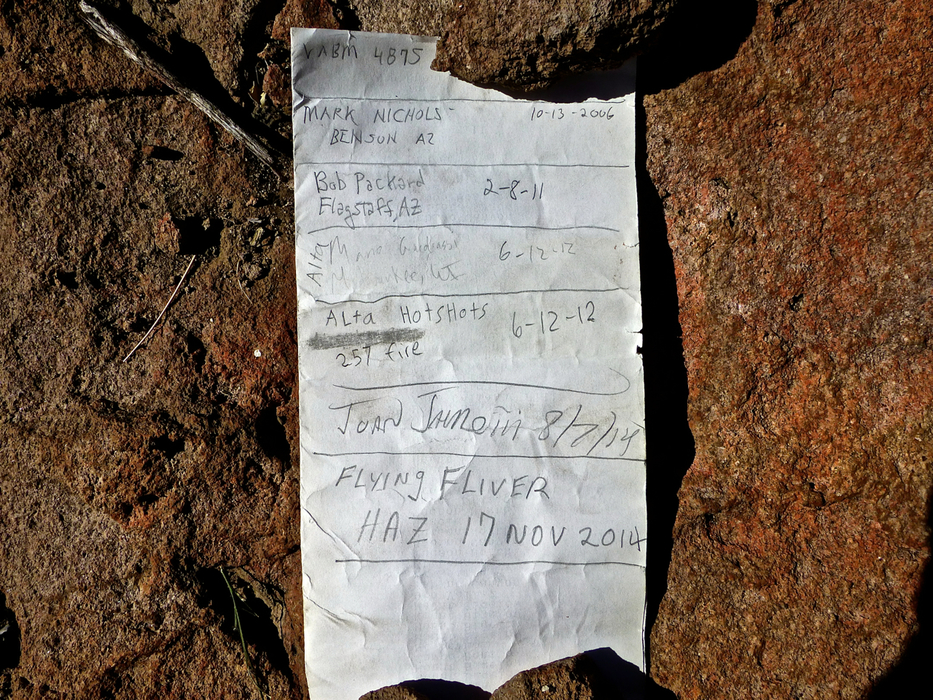 VABM 4875
MARK NICHOLS 10-13-2006
BENSON AZ
Bob Packard 2-8-11
Flagstaff, AZ
6-12-12
ALta HOTSHOTS 6-12-12
257 fire
JUAN 8/7/14
FLYING FLIVER
HAZ 17 NOV 2014